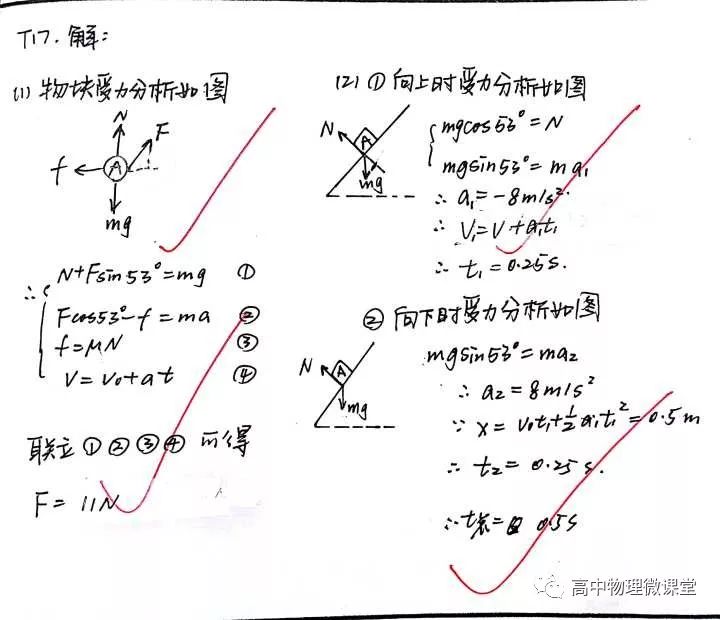 T17. 解:
(1) 物块受力分析如图
N
F
f
A
mg
∴ N+Fsin53°=mg ①
Fcos53°-f=ma ②
f=μN ③
V=V₀+at ④
联立①②③④ 可得
F= 11N
(2) ① 向上时受力分析如图
N
A
mg
mgcos53°=N
mgsin53°=ma₁
∴ a₁=-8m/s².
∴ V₁=V+a₁t₁
∴ t₁=0.25s.
② 向下时受力分析如图
N
A
mg
mgsin53°=ma₂
∴ a₂=8m/s²
∵ x=V₀t₁+½a₁t₁²=0.5m
∴ t₂=0.25s.
∴ t总= 0.5s
高中物理微课堂